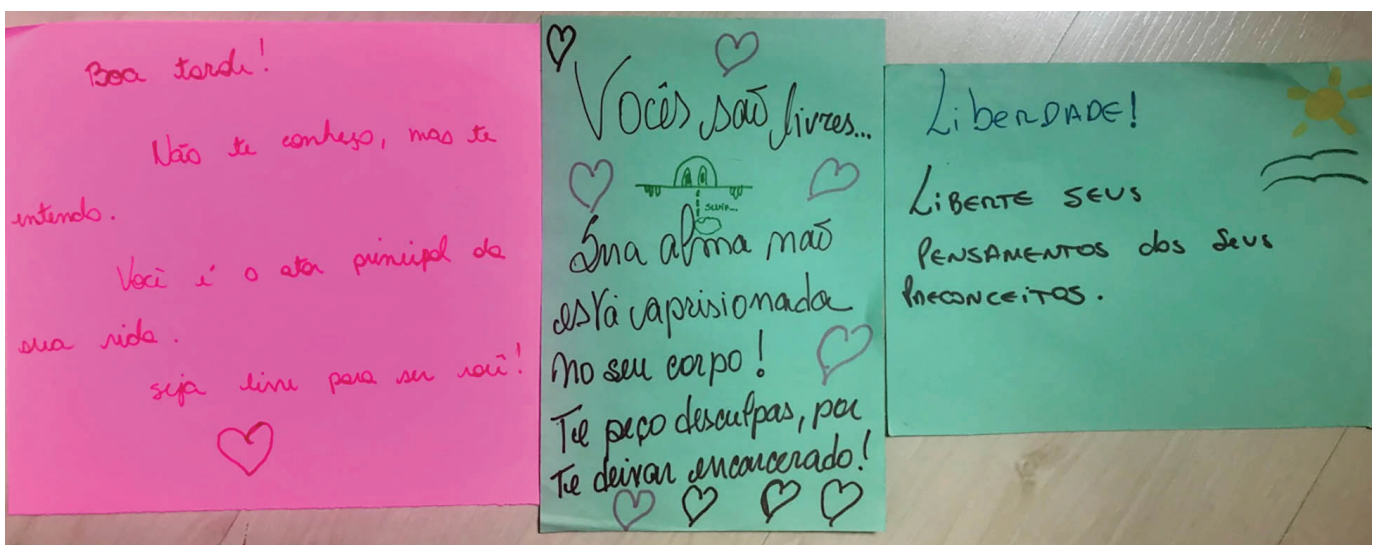 Boa tarde!
Não te conheço, mas te
entendo.
Você é o ator principal da
sua vida.
seja livre para ser você!
Vocês são livres...
Sua alma não
está aprisionada
no seu corpo!
Te peço desculpas, por
Te deixar encarcerado!
Liberdade!
LIBERTE SEUS
PENSAMENTOS dos seus
PRECONCEITOS.